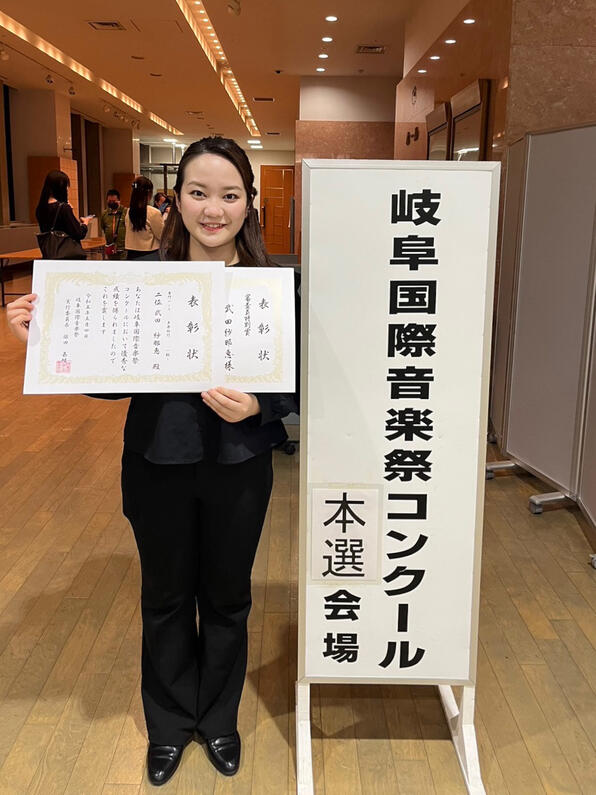 岐阜国際音楽祭コンクール
本選
会場
表彰状
二位 武田 紗耶恵 殿
あなたは岐阜国際音楽祭
コンクールにおいて優秀な
成績を博されましたので
これを賞します
岐阜国際音楽祭
表彰状
審査員特別賞
武田 紗耶恵 様